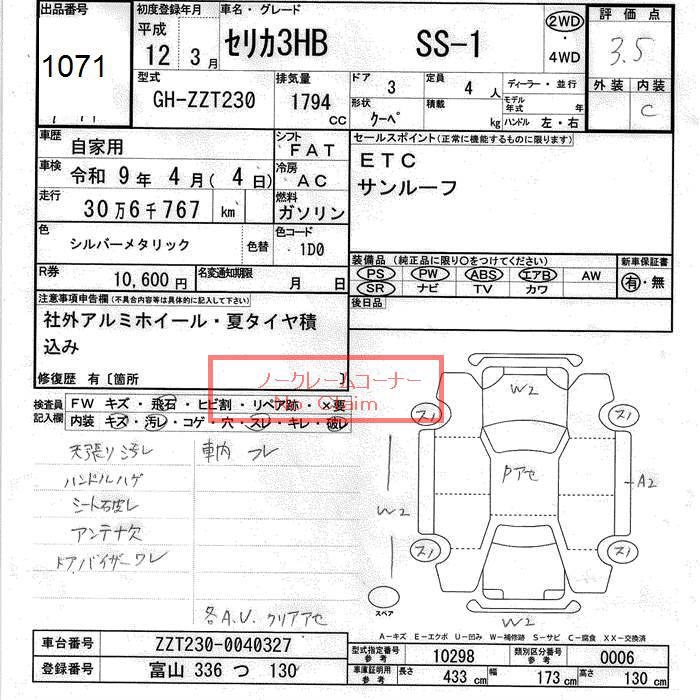 出品番号
1071
初度登録年月
平成
12年 3月
車名・グレード
セリカ3HB SS-1
2WD
・
4WD
評価点
3.5
外装 内装
C
型式
GH-ZZT230
排気量
1794
CC
ドア 3
定員 4 人
ディーラー・並行
形状 クーペ
積載 kg
モデル年式 年
ハンドル 左・右
車歴 自家用
シフト FAT
車検 令和 9年 4月 ( 4日)
冷房 AC
走行 30万6千767 km
燃料 ガソリン
色 シルバーメタリック 色替
色コード 1D0
R券 10,600円
名変通知期限 月 日
セールスポイント(正常に機能するものに限ります)
ETC
サンルーフ
装備品 (純正品に限り○をつけてください)
新車保証書
PS PW ABS エアB AW
SR ナビ TV カワ
有・無
後日品
注意事項申告欄(不具合内容等は具体的に記入して下さい)
社外アルミホイール・夏タイヤ積
込み
修復歴 有〔箇所 〕
ノークレームコーナー
No Claim
検査員記入欄
FW キズ・飛石・ヒビ割・リペア跡・×要
内装 キズ・汚レ・コゲ・穴・スレ・キレ・破レ
天張り汚レ
ハンドルハゲ
シート破レ
アンテナ欠
ドアバイザーワレ
車内 フレ
各A.U. クリアアセ
W2
ス1
ス1
Pアセ
A2
W2
ス1
ス1
スペア
W2
A-キズ E-エクボ U-凹み W-補修跡 S-サビ C-腐食 XX-交換済
車台番号 ZZT230-0040327
登録番号 富山 336 つ 130
型式指定番号 参考 10298
類別区分番号 参考 0006
車庫証明用 参考
長さ 433 cm
幅 173 cm
高さ 130 cm